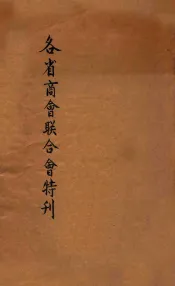 各省商會联合會特刊